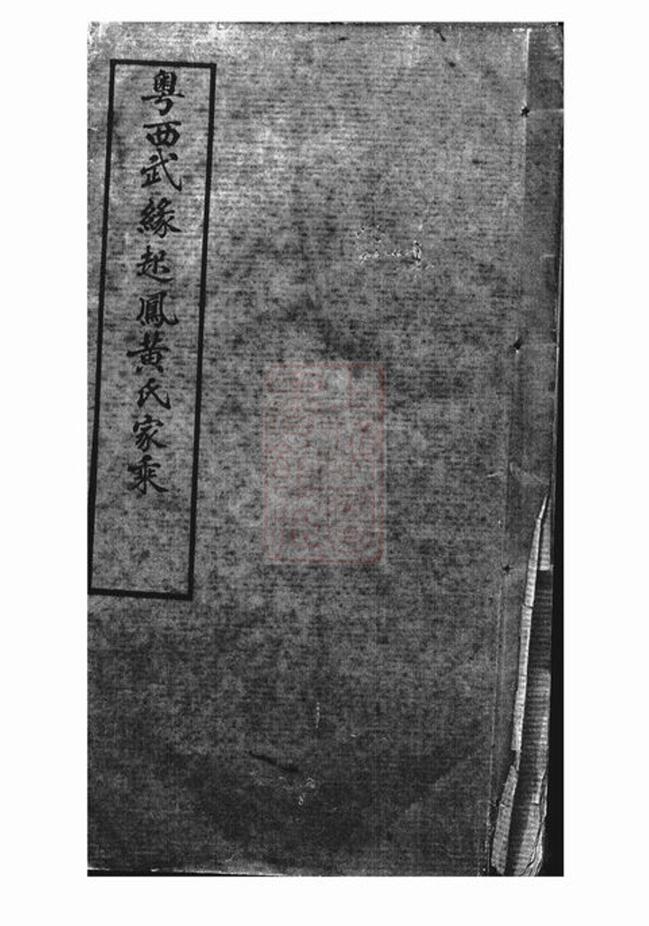 粵西武緣起鳳黃氏家乘